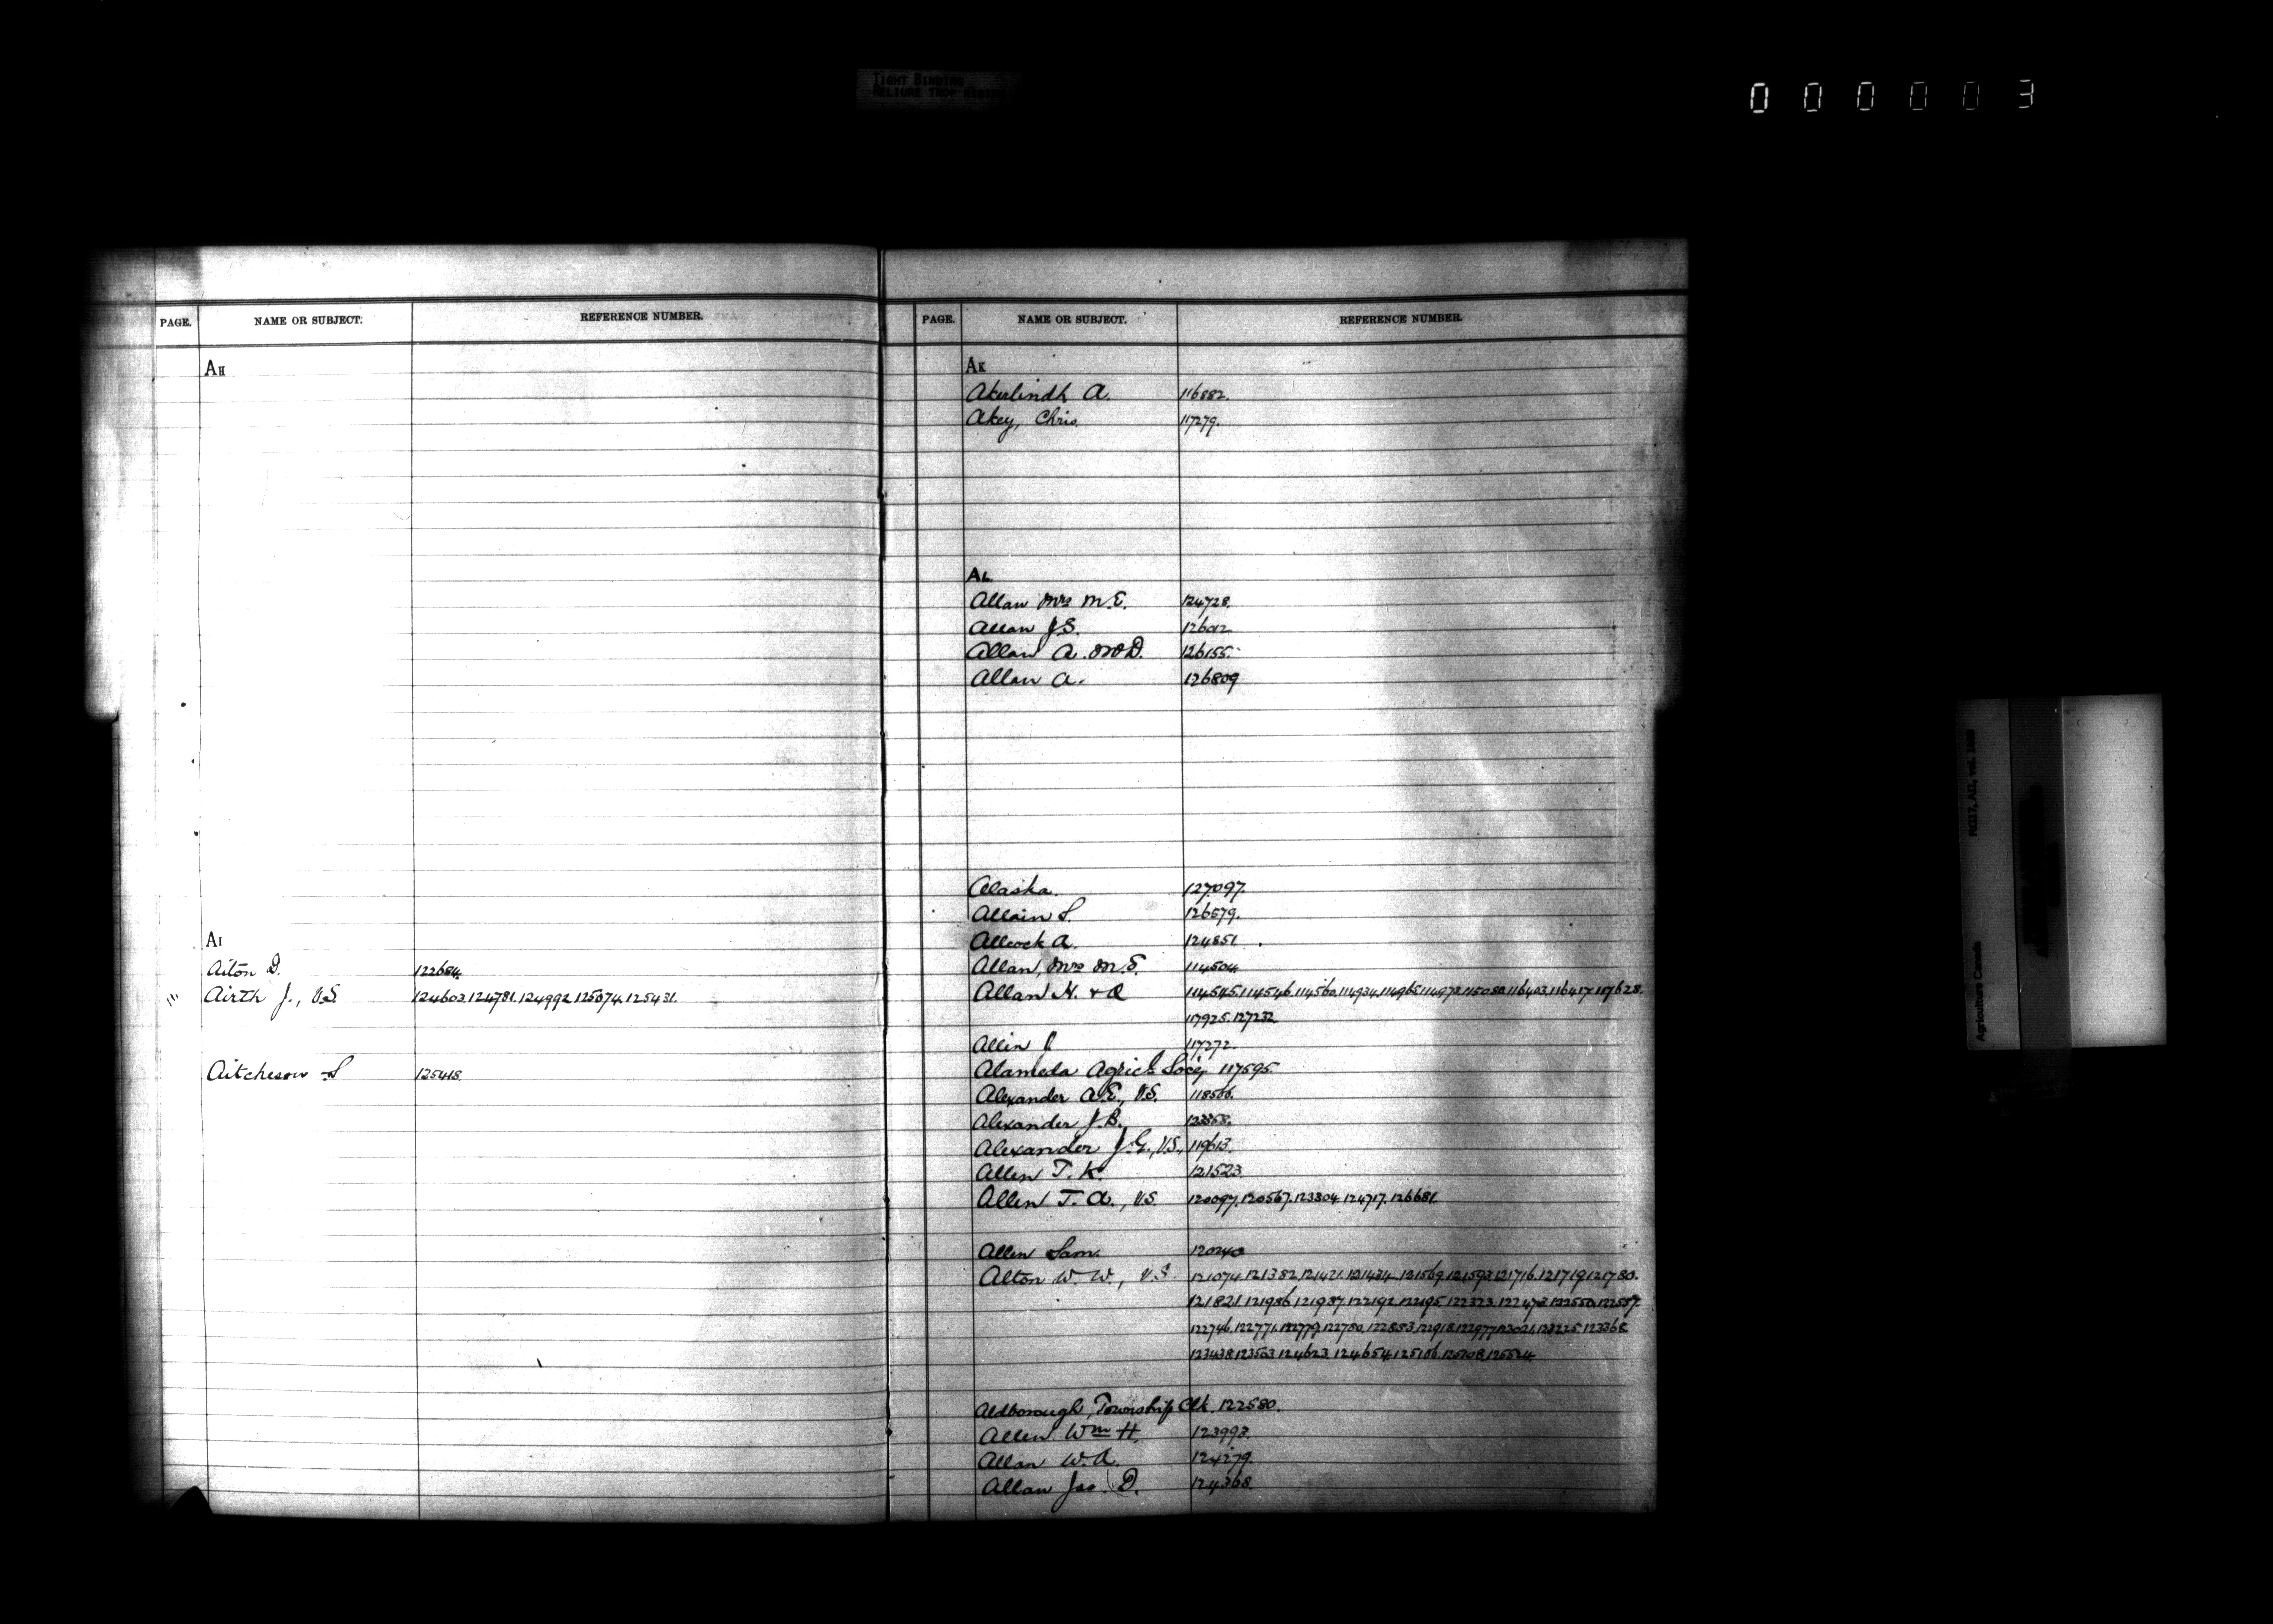 TIGHT BINDING
RELIURE TROP
000003
PAGE. NAME OR SUBJECT. REFERENCE NUMBER.
AH
AI
Aiton D. 122684.
Airth J., V.S. 124603. 124781. 124992. 125074. 125431.
Aitcheson S 125418.
PAGE. NAME OR SUBJECT. REFERENCE NUMBER.
AK
Akerlindh A. 116882.
Akey, Chris. 117279.
AL
Allan Mrs M.E. 124728.
Allan J.S. 126012
Allan A. M.D. 126155.
Allan A. 126809
Alaska. 127097.
Allain S. 126579.
Allcock A. 124851.
Allan, Mrs M.E. 114504
Allan H. & A 114515. 114546. 114560. 114934. 114965. 114978. 115080. 116403. 116417. 117628.
117925. 127232
Allin J 117272.
Alameda Agricl Socy 117595.
Alexander A.E., V.S. 118566.
Alexander J.B. 123358.
Alexander J.G., V.S., 119613.
Allen T.K. 121523
Allen T.A., V.S. 120097. 120567. 123304. 124717. 126681.
Allen Sam. 120240
Alton W.W., V.S. 121074. 121382. 121421. 121434. 121569. 121593. 121716. 121719. 121780.
121821. 121986. 121987. 122192. 122195. 122323. 122473. 122550. 122557.
122746. 122771. 122779. 122780. 122883. 122918. 122977. 123021. 123225. 123368
123438. 123503. 124623. 124654. 125106. 125108. 125524
Aldborough, Township Clk. 122580.
Allen Wm H. 123993.
Allan W.A. 124279.
Allan Jas. D. 124368.
RG17, AII, vol.
Agriculture Canada